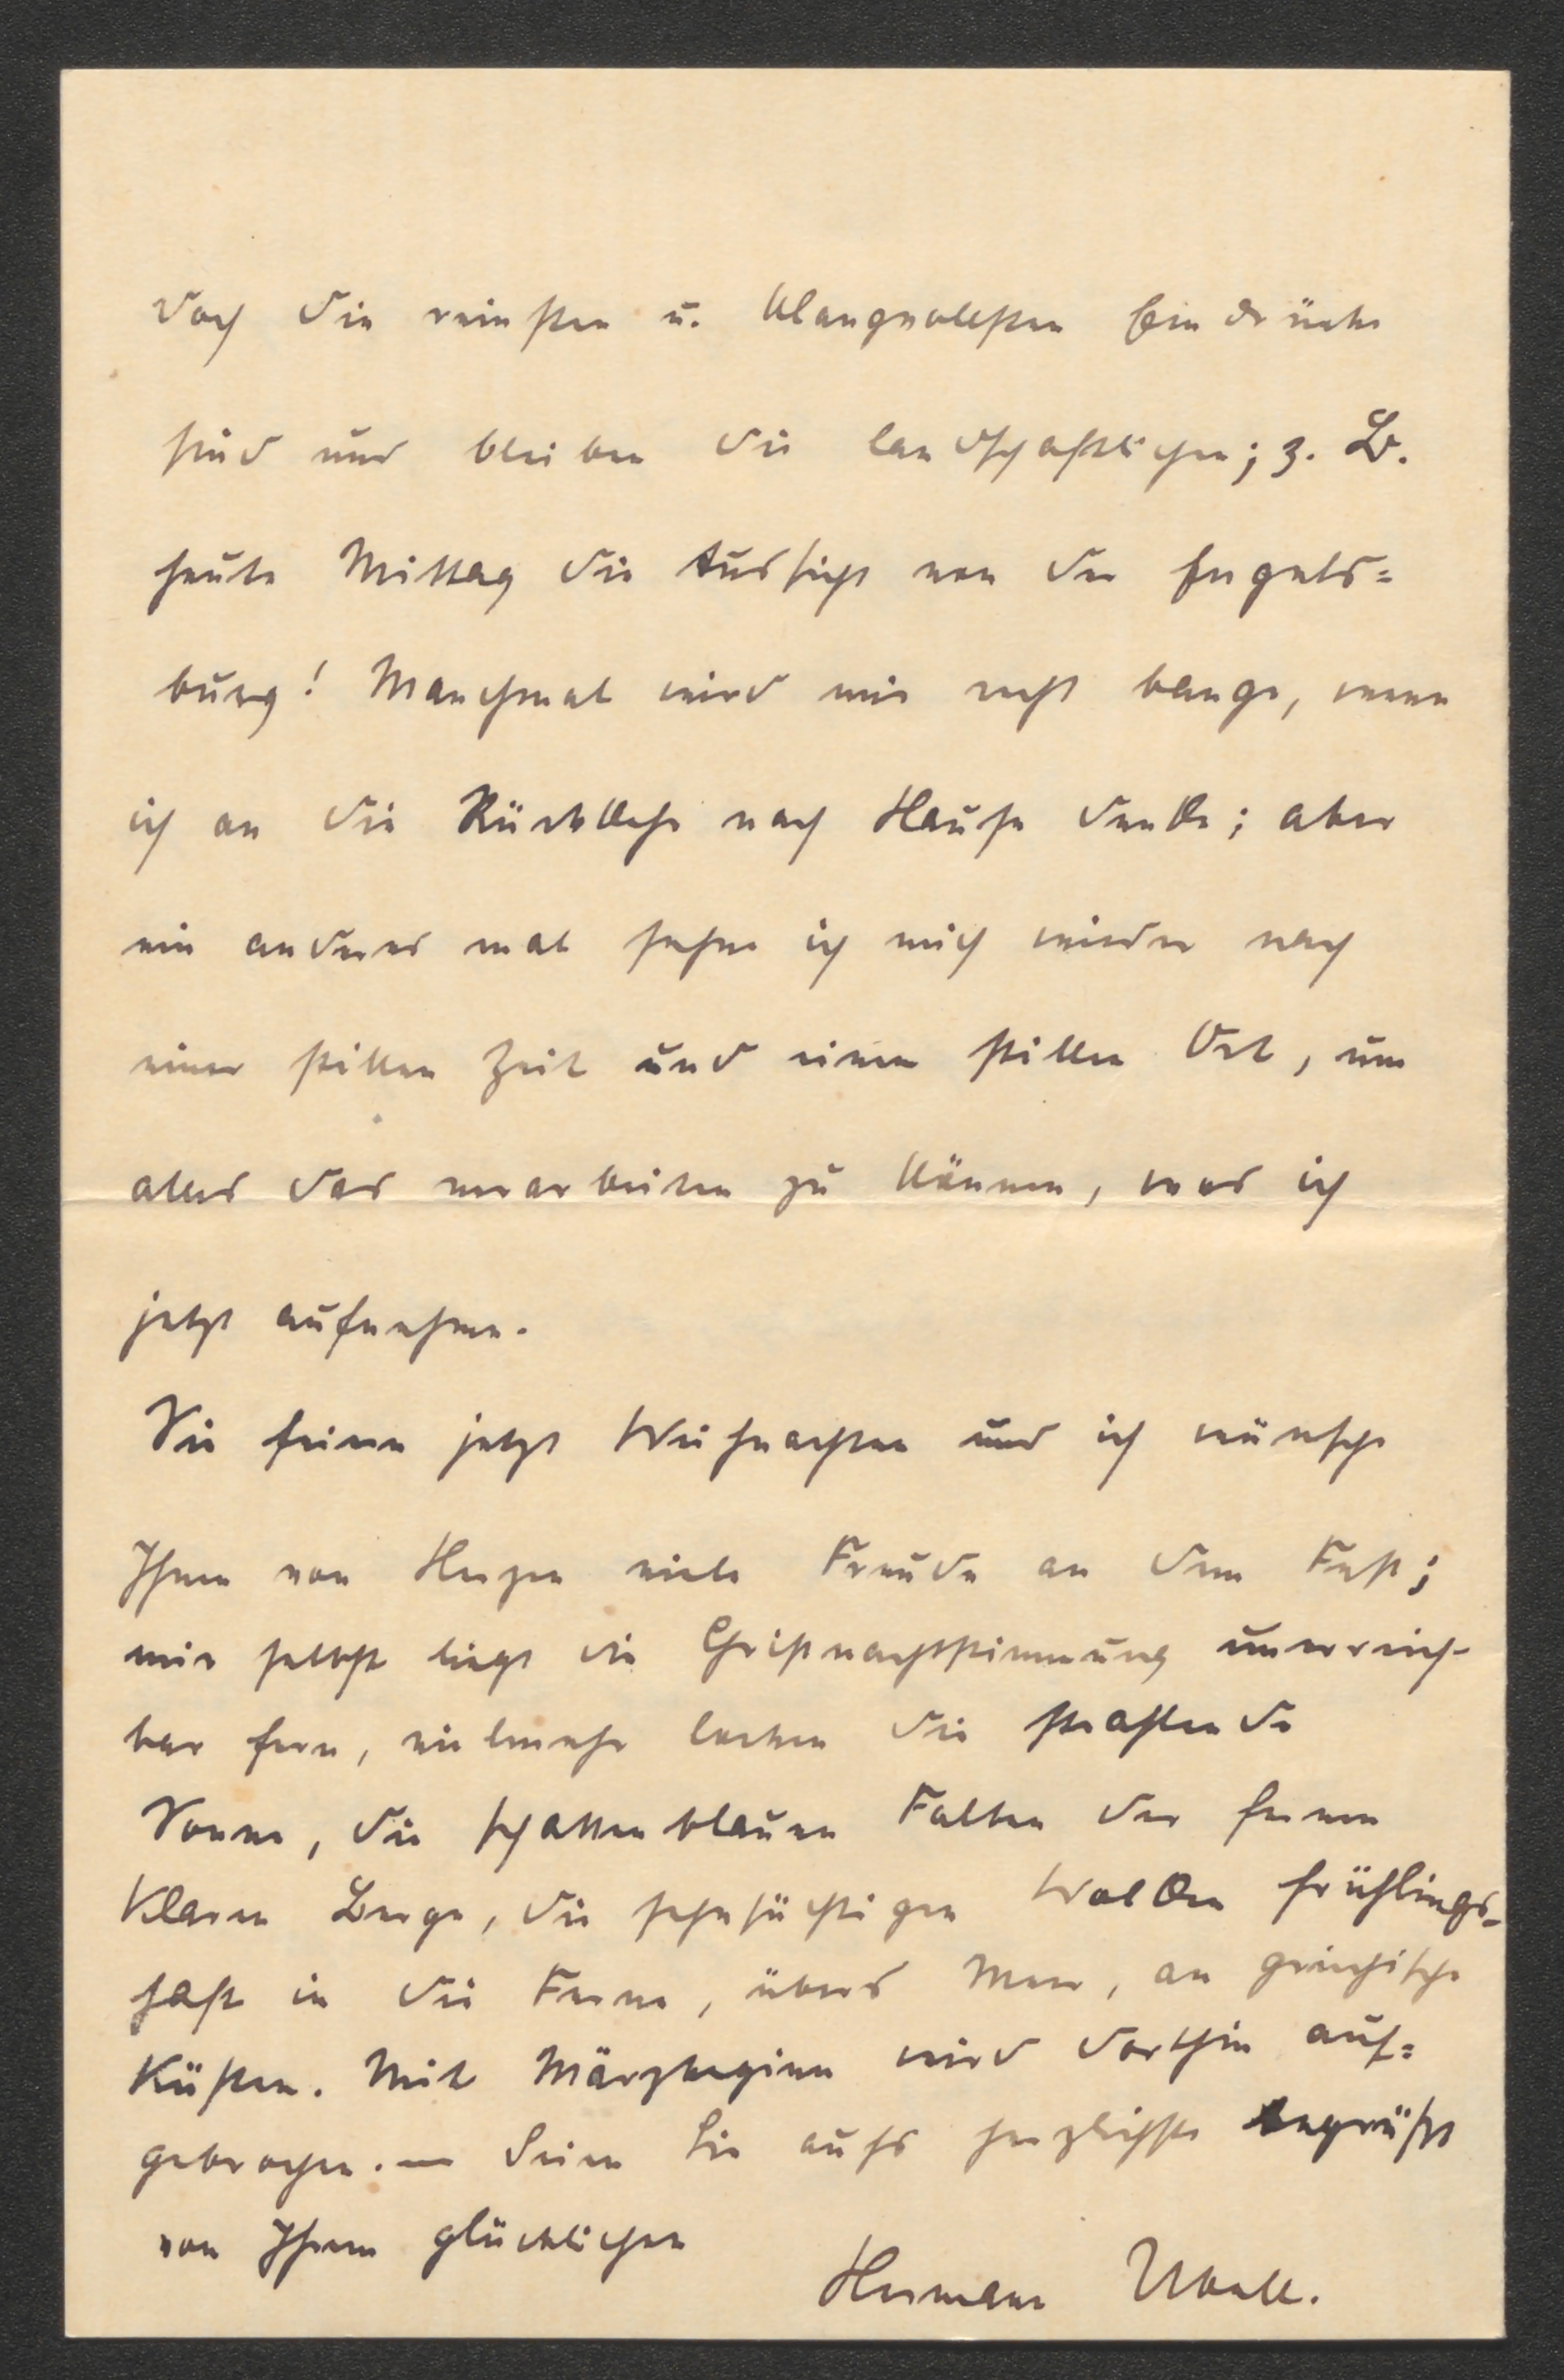 doch die reinsten u. klangvollsten Eindrücke
sind und bleiben die landschaftlichen; z. B.
heute Mittag die Aussicht von der Engels=
burg! Manchmal wird mir recht bange, wenn
ich an die Rückkehr nach Hause denke; aber
ein anderes mal sehne ich mich wieder nach
einer stillen Zeit und einem stillen Ort, um
alles das verarbeiten zu können, was ich
jetzt aufnehme.
Sie feiern jetzt Weihnachten und ich wünsche
Ihnen von Herzen viele Freude an dem Fest;
mir selbst liegt die Christnachtstimmung unerreich-
bar fern, vielmehr locken die strahlende
Sonne, die schattenblauen Falten der fernen
klaren Berge, die sehnsüchtigen Wolken frühlings-
haft in die Ferne, übers Meer, an griechische
Küsten. Mit Märzbeginn wird dorthin auf=
gebrochen. — Seien Sie aufs herzlichste begrüßt
von Ihrem glücklichen
Hermann Ubell.